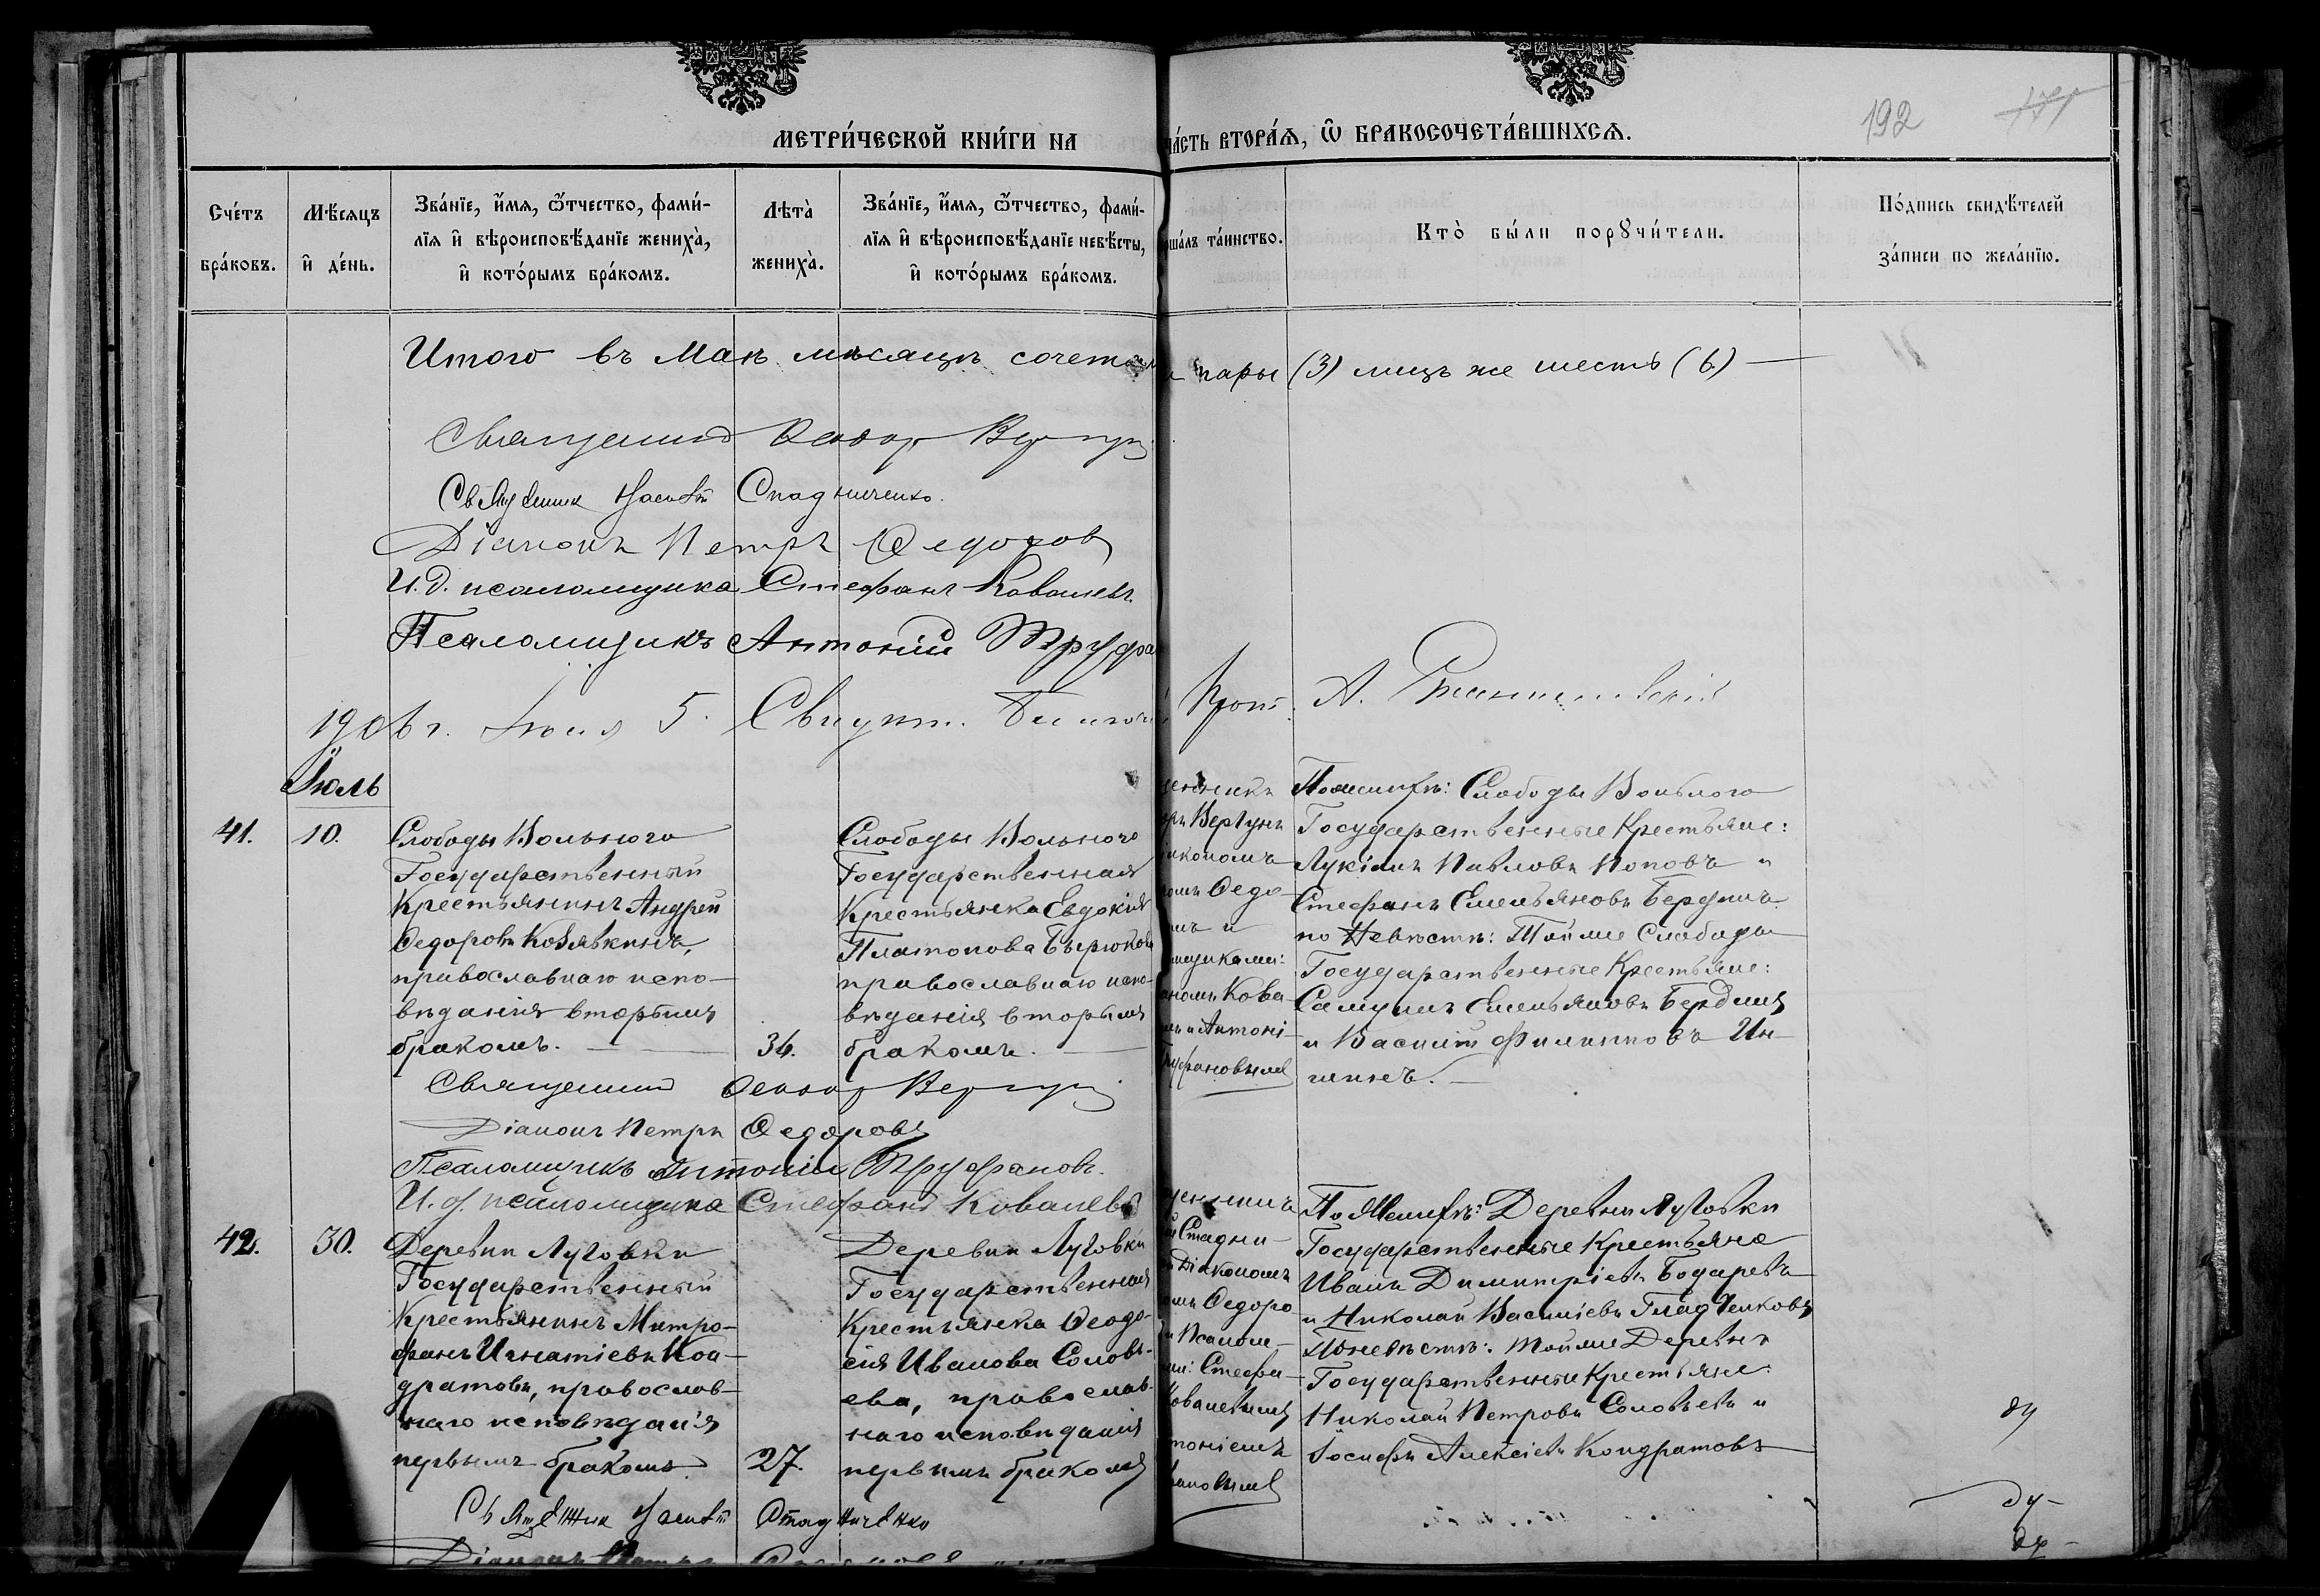 192
МЕТРИ́ЧЕСКОЙ КНИ́ГИ НА
ЧА́СТЬ ВТОРА́Ѧ, Ѽ БРАКОСОЧЕТА́ВШИХСѦ.
Сче́тъ
бра́ковъ.
Мѣ́сѧцъ
и҆ де́нь.
Зва́нїе, и҆́мѧ, ѻ҆́тчество, фами́-
лїѧ и҆ вѣроисповѣ́данїе жениха̀,
и҆ кото́рымъ бра́комъ.
Лѣта̀
жениха̀.
Зва́нїе, и҆́мѧ, ѻ҆́тчество, фами́-
лїѧ и҆ вѣроисповѣ́данїе невѣ́сты,
и҆ кото́рымъ бра́комъ.
шáлъ та́инство.
Кто̀ бы́ли порꙋчи́тели.
По́дпись свидѣ́телей
за́писи по жела́нїю.
Итого въ Маѣ мѣсяцѣ сочета
пары (3) лицъ же шесть (6)
Священник Федор Вергун
Священник
Діаконъ Петръ Федоров
И. д. псаломщика Стефанъ Ковалевъ
Псаломщикъ Антоній Труфа
1906 г. Июля 5.
Прот. А.
Іюль
41.
10.
Слободы Вольного
Государственный
Крестьянинъ Андрей
Федоровъ Козявкинъ,
православнаго испо-
вѣданія вторымъ
бракомъ.
36.
Слободы Вольного
Государственная
Крестьянка Евдокія
Платонова Бырюкова
православнаго испо-
вѣданія вторымъ
бракомъ.
Вергунъ
Федо
и
щиками:
Кова
и Антоні
руфановымъ
По женихѣ: Слободы Вольного
Государственные Крестьяне:
Лукіанъ Павловъ Поповъ и
Стефанъ Емельяновъ Бердинъ
по Невѣстѣ: Той же Слободы
Государственные Крестьяне:
Самуилъ Емельяновъ Бердинъ
и Василій Филипповъ Ин-
шинъ.
Священник Федор Вергун
Діаконъ Петръ Федоровъ
Псаломщикъ Антоній Труфановъ.
И. д. псаломщика Стефанъ Ковалевъ
42.
30.
Деревни Луговки
Государственный
Крестьянинъ Митро-
фанъ Игнатіевъ Кон-
дратовъ, православ-
наго исповѣданія
первымъ бракомъ.
27.
Деревни Луговки
Государственная
Крестьянка Феодо-
сія Иванова Соловь-
ева, православ-
наго исповѣданія
первымъ бракомъ
Стадни
Діакономъ
Федоро
и Псалом
Стефа
Ковалевымъ
тоніемъ
фановымъ
По Женихѣ: Деревни Луговки
Государственные Крестьяне
Иванъ Димитріевъ Бодаревъ
и Николай Василіевъ Гладченковъ
По невѣстѣ: той же Деревни
Государственные Крестьяне:
Николай Петровъ Соловьевъ и
Іосифъ Алексіевъ Кондратовъ
Священник
Стадниченко
Діаконъ Петръ